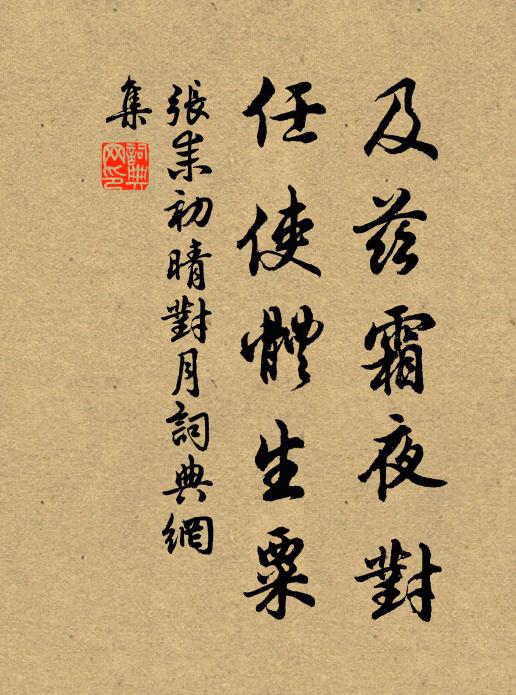 及茲霜夜對
任使體生粟
張耒初晴對月詞典網
集
詞典
网印